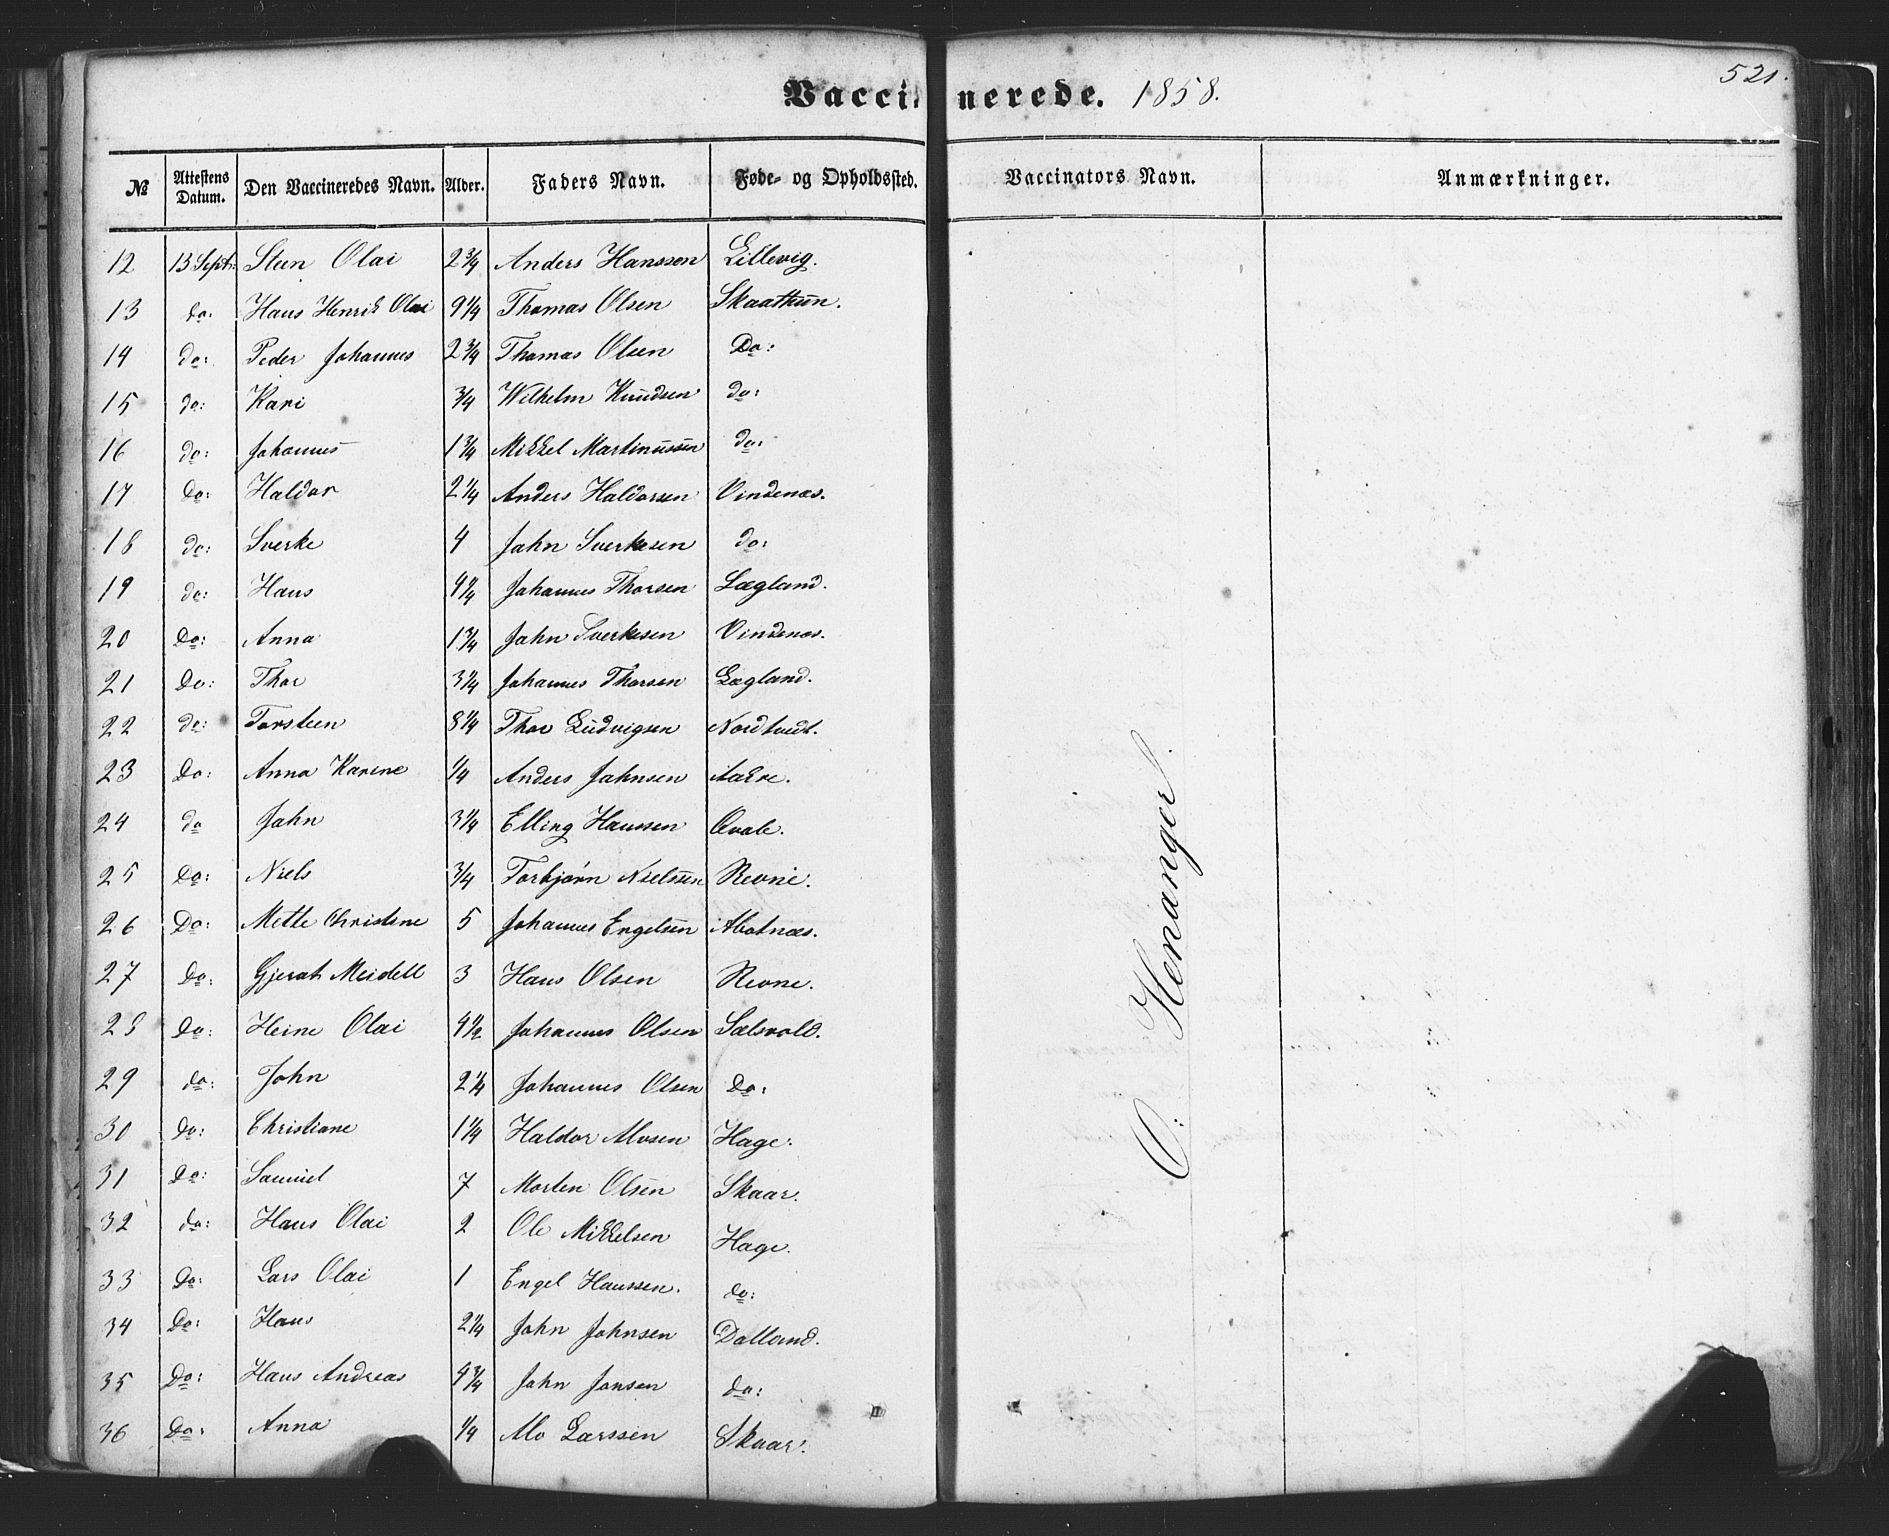 Vaccinerede. 1858.
521.
No Attestens Datum. Den Vaccineredes Navn. Alder. Faders Navn. Føde- og Opholdssted. Vaccinators Navn. Anmærkninger.
12 13 Septr: Steen Olai 2 3/4 Anders Hanssen Lillevig.
13 do: Hans Henrik Olai 9 1/4 Thomas Olsen Skaathun.
14 do: Peder Johannes 2 3/4 Thomas Olsen Do:
15 do: Kari 3/4 Wilhelm Knudsen do:
16 do: Johannes 1 3/4 Mikkel Martinussen do:
17 Do: Haldor 2 1/4 Anders Haldorsen Vindenæs.
18 do: Sverke 4 John Sverkesen do:
19 do: Hans Johannes Thorsen Lægland.
20 Do: Anna 1 3/4 John Sverkesen Vindenæs.
21 Do: Thor 3 1/4 Johannes Thorsen Lægland.
22 do: Torsteen 8 1/4 Thor Ludvigsen Nordtvedt.
23 Do: Anna Karine 1/4 Anders Johnsen
24 do John 3 1/4 Elling Hanssen
25 Do: Niels 3/4 Torbjørn Nielssen Revne.
26 Do: Mette Christine 5 Johannes Engelsen
27 Do: Gjerat Meidell 3 Hans Olsen Revne.
28 Do: Heine Olai 4 1/2 Johannes Olsen Sælsvold.
29 do: John 2 1/4 Johannes Olsen Do:
30 Do: Christiane 1 1/4 Haldor Monsen Hage.
31 Do: Samuel 7 Morten Olsen Skaar.
32 do: Hans Olai 2 Ole Mikkelsen Hage.
33 Do: Lars Olai 1 Engel Hanssen. do:
34 Do: Hans 2 1/4 John Johnsen Dalland.
35 Do: Hans Andreas 4 3/4 John Jonsen do:
36 Do: Anna 1/4 Mo Larssen Skaar.
O: Henanger.